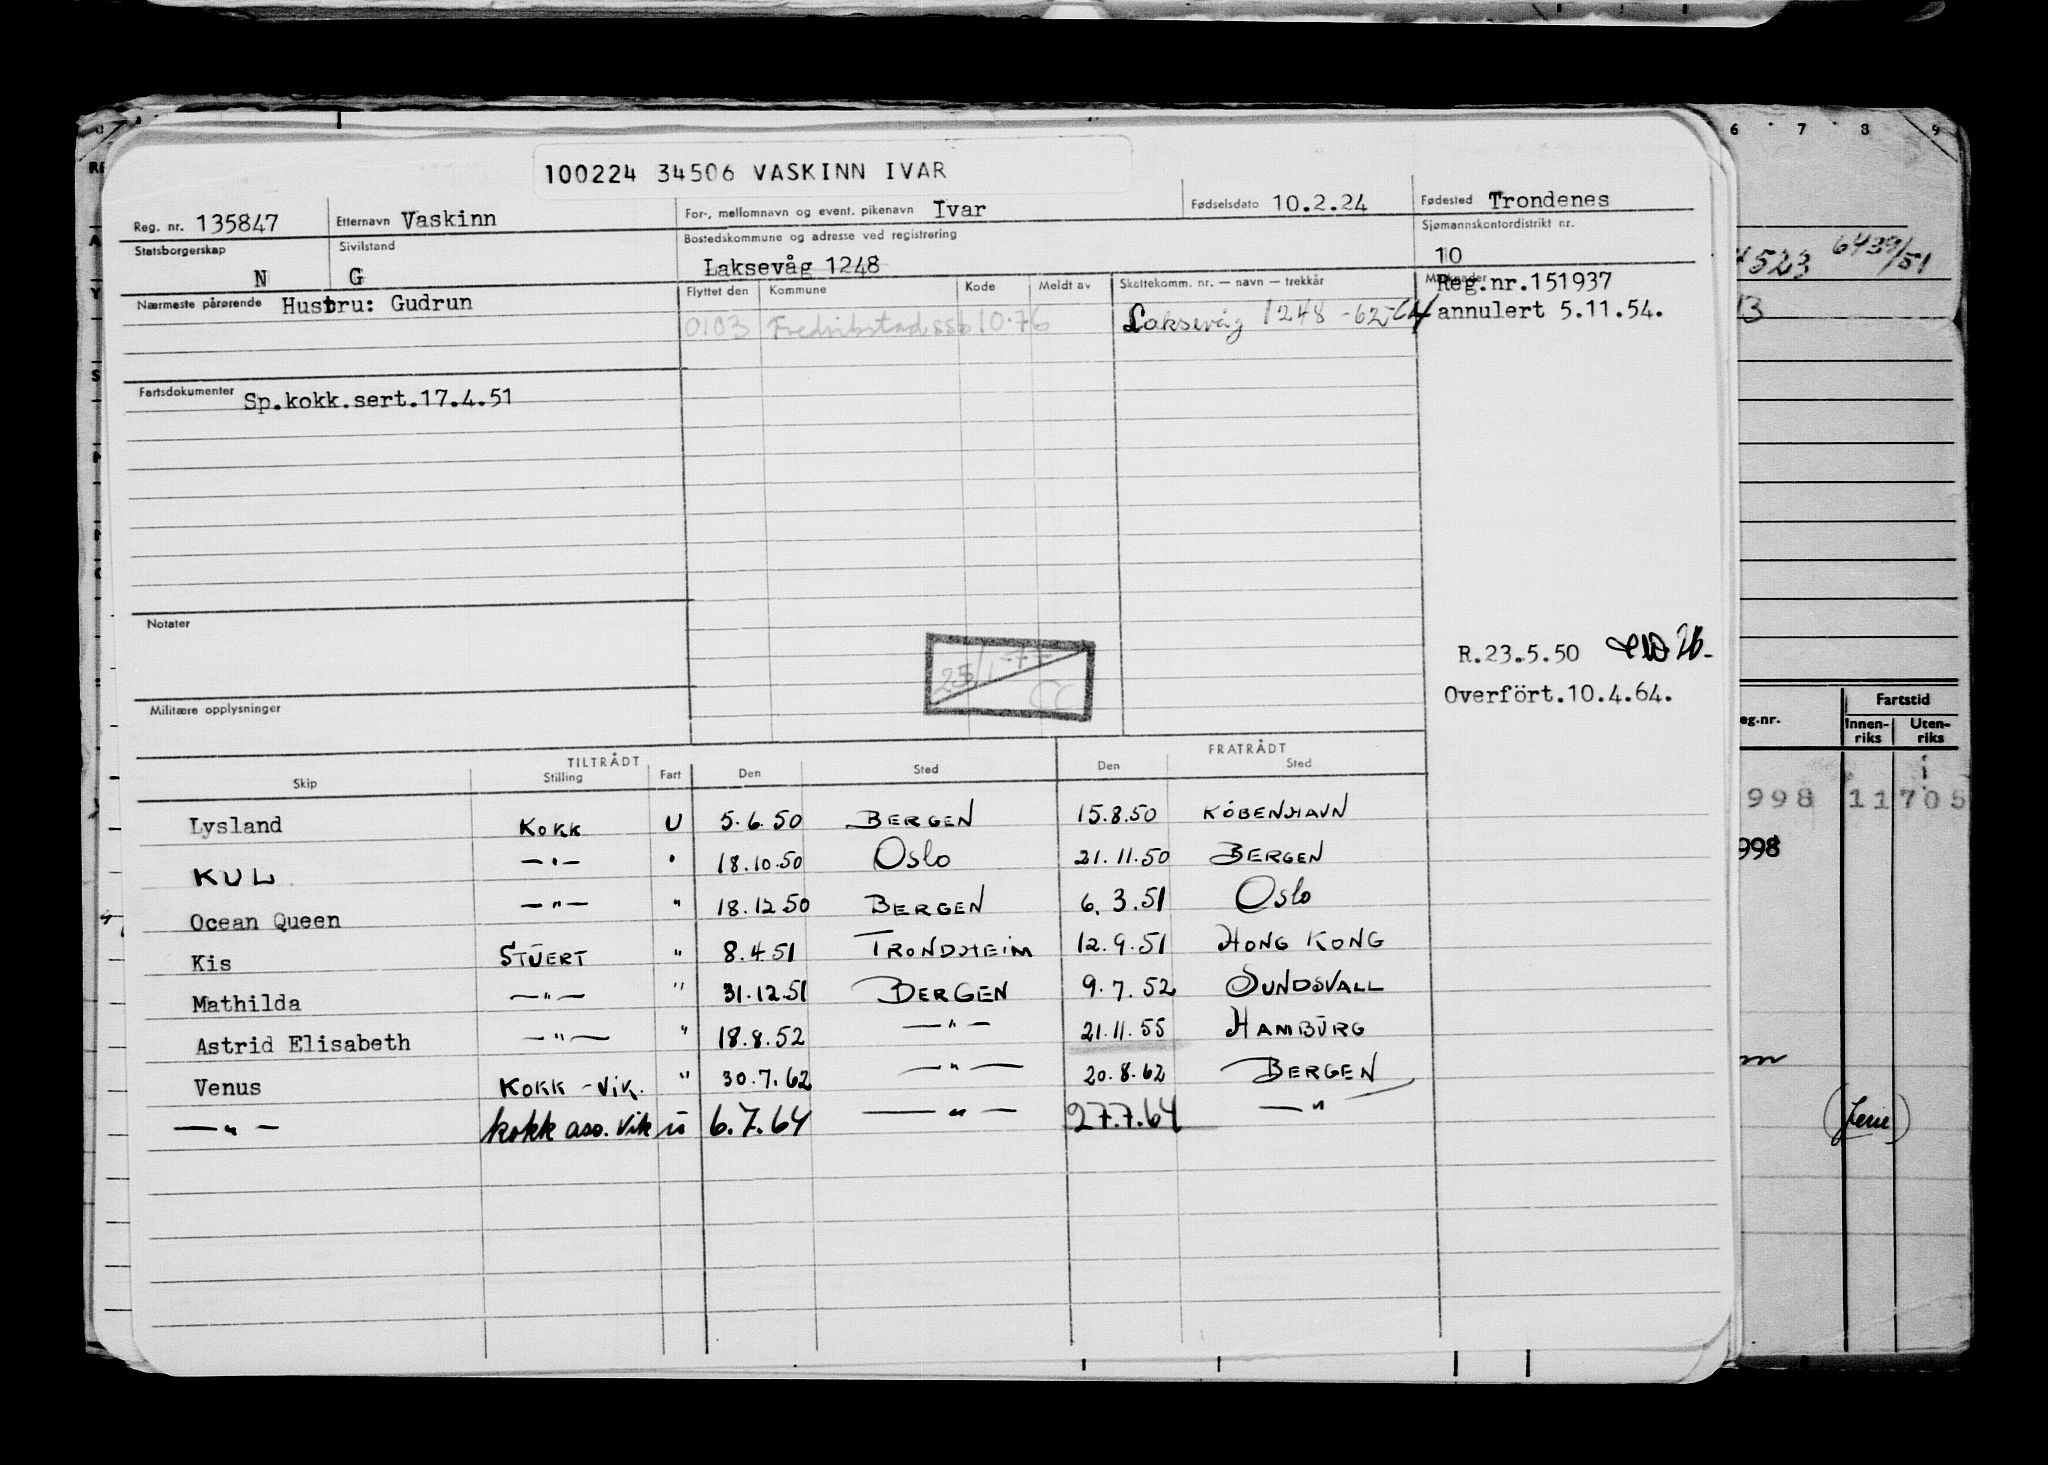 100224 34506 VASKINN IVAR
Reg. nr. 135847 Etternavn Vaskinn For-, mellomnavn og event. pikenavn Ivar Fødselsdato 10.2.24 Fødested Trondenes
Statsborgerskap N Sivilstand G Bostedskommune og adresse ved registrering Laksevåg 1248 Sjømannskontordistrikt nr. 10
Nærmeste pårørende Hustru: Gudrun Flyttet den Kommune Kode Meldt av Skattekomm. nr. — navn — trekkår Reg.nr.151937
0103 Fredrikstad ssb 10.76 Laksevåg 1248 -62-64 annulert 5.11.54.
Fartsdokumenter Sp.kokk.sert.17.4.51
Notater
R.23.5.50
25/1-77
Overfört.10.4.64.
Militære opplysninger
TILTRÅDT FRATRÅDT
Skip Stilling Fart Den Sted Den Sted
Lysland KOKK U 5.6.50 BERGEN 15.8.50 KÖBENHAVN
KUL —"— " 18.10.50 OSLO 21.11.50 BERGEN
Ocean Queen —"— " 18.12.50 BERGEN 6.3.51 OSLO
Kis STUERT " 8.4.51 TRONDHEIM 12.9.51 HONG KONG
Mathilda —"— " 31.12.51 BERGEN 9.7.52 SUNDSVALL
Astrid Elisabeth —"— " 18.8.52 —"— 21.11.55 HAMBURG
Venus KOKK-VIK. " 30.7.62 —"— 20.8.62 BERGEN
—"— kokk ass. vik u 6.7.64 —"— 27.7.64 —"
6 7 8 9
4523 6439/51
eg.nr. Fartstid
Innen-riks Uten-riks
998 11705
998
(Ferie)